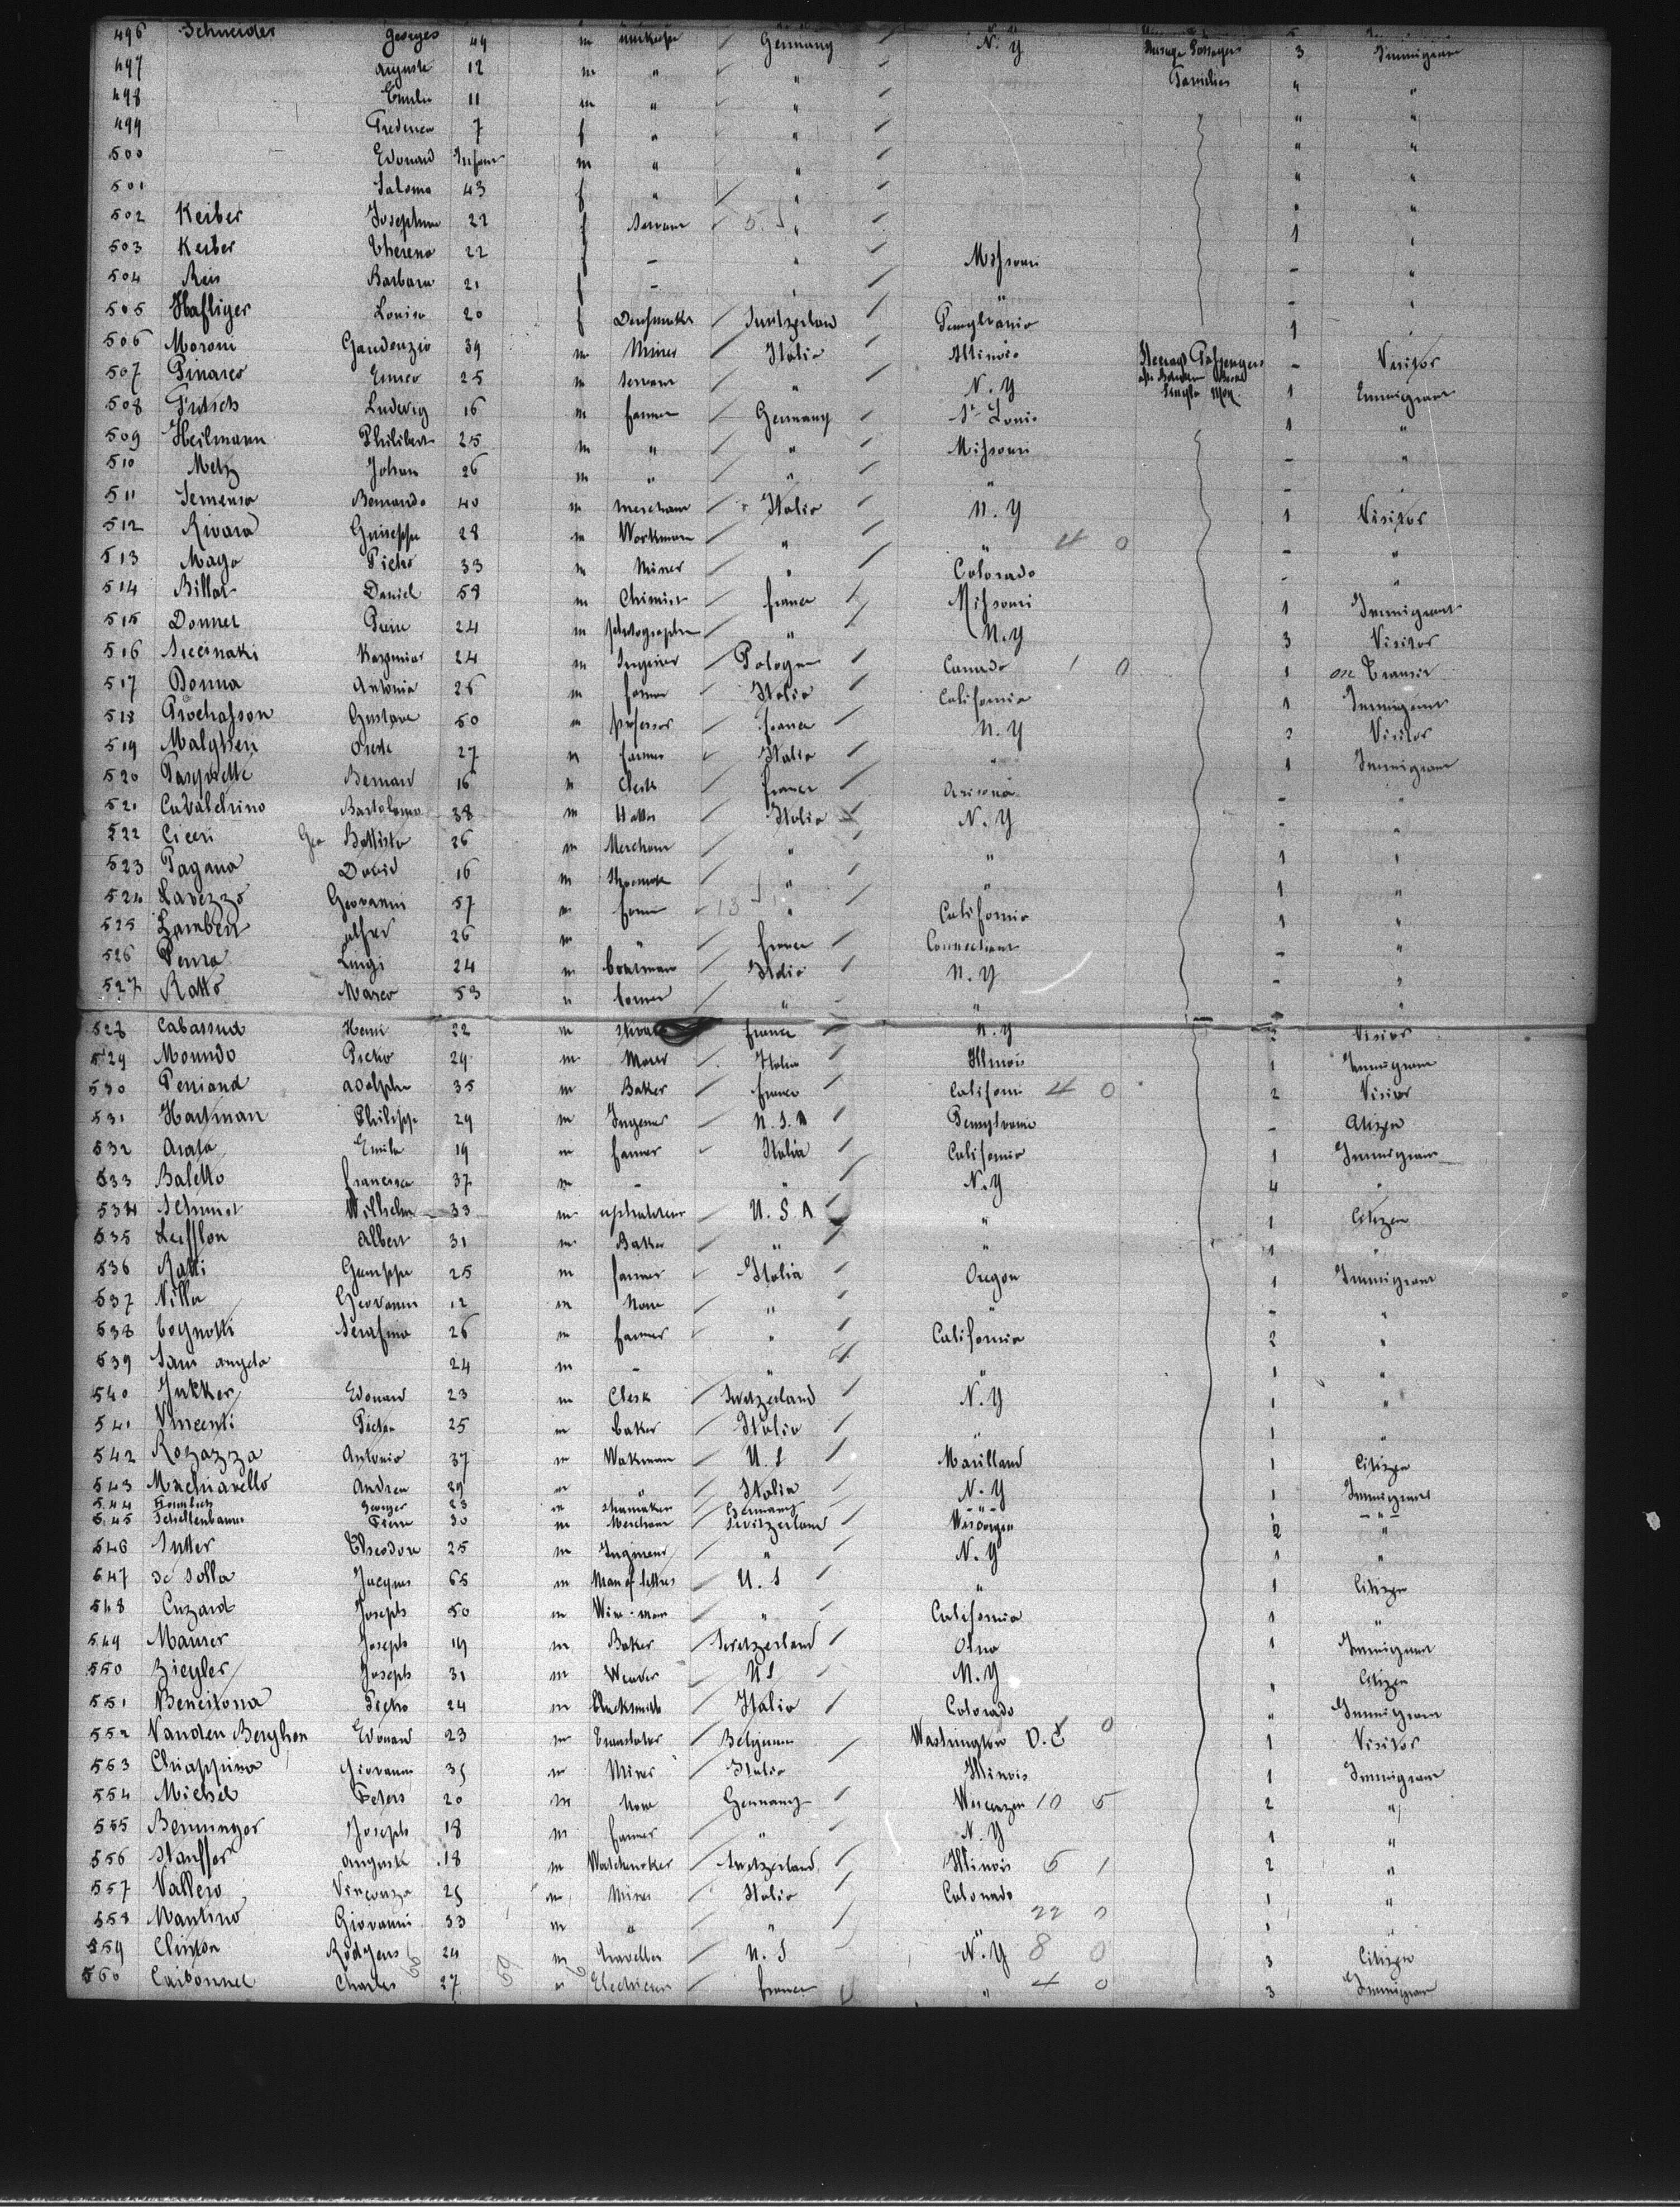 496 Schneider Georges 49 m Germany / N.Y 3 Immigrant
497 Auguste 12 m " " / Families " "
498 Emilie 11 m " " / " "
499 7 f " " / " "
500 Edouard Infant m " " / " "
501 Saloma 43 f " / " / " "
502 Keiber Josephine 22 f Servant / " / 1 "
503 Keiber Theresa 22 f - " / Missouri - "
504 Reis Barbara 21 f - " / " - "
505 Hafliger Louise 20 f / Switzerland / Pensylvania 1 "
506 Moroni Gaudenzio 39 m Miner / Italia / Illinois Steerage Passengers - Visitor
507 Pinasco Enrico 25 m Servant / " / N.Y Single Men 1 Immigrant
508 Fritsch Ludwig 16 m farmer / Germany / St Louis 1 "
509 Heilmann Philibert 25 m " / " / Missouri - "
510 Metz Johan 26 m " / " / " - "
511 Semensa Bernardo 40 m merchant Italia / N.Y 1 Visitor
512 Rivara Guiseppe 28 m Workman / " / " 4 0 - "
513 Mago Pietro 33 m Miner / " / Colorado - "
514 Billot Daniel 58 m Chimist / france / Missouri 1 Immigrant
515 Donnet Pierre 24 m photographer / " / N.Y 3 Visitor
516 Siecinski Kazimiar 24 m Ingenier / Pologne / Canada 1 0 1 on Transit
517 Donna Antonia 26 m farmer / Italia / California 1 Immigrant
518 Prochasson Gustave 50 m professor / france / N.Y 2 Visitor
519 Malgheri Oreste 27 m farmer / Italia / " 1 Immigrant
520 Bernard 16 m Clerk / france / Arisona - "
521 Cavalchino Bartolomeo 38 m Italia N.Y - "
522 Ciceri Gio Battista 26 m Merchant / " / " 1 "
523 Pagana David 16 m / " / " 1 "
524 Lavezzo Geovanni 57 m farmer 13 " / California 1 "
525 Lambert Alfred 26 m " france / Connecticut - "
526 Penra Luigi 24 m Italia / N.Y - "
527 Ratto Marco 53 m / " " "
528 Cabassud Henri 22 m france / N.Y 2 Visitor
529 Moundo Pietro 29 m / Italia / Illinois 1 Immigrant
530 Perriand Adolphe 35 m Baker / france / Californi 4 0 2 Visitor
531 Hartman Philipp 29 m Ingenier / U.S.A / Pensylvania - Citizen
532 Arata Emile 19 m farmer Italia / California 1 Immigrant
533 Baletto francesca 37 m - " / N.Y 4 "
534 Schmidt Wilhelm 33 m / U.S.A / " 1 Citizen
535 Leifflon Albert 31 m Baker / " / " 1 "
536 Ratti Giuseppe 25 m farmer / Italia / Oregon 1 Immigrant
537 Villa Geovanni 12 m None / " / " - "
538 Tognotti Serafino 26 m farmer " / California 2 "
539 Sans angelo 24 m - " " 1 "
540 Jukker Edouard 23 m Clerk / Switzerland / N.Y 1 "
541 Vincenti Pietro 25 m baker / Italia / " 1 "
542 Rozazza Antonio 37 m Wakman / U.S / Marilland 1 Citizen
543 Machiavello Andrea 29 m " Italia / N.Y 1 Immigrant
544 Georges 23 m Shumaker Germany "
545 Schellenbaum Pierre 30 m Merchant / Switzerland / 2 "
546 Sutter Theodore 25 m Ingenieur / " / N.Y 1 "
547 de Solla Jacques 65 m Man of lettres / U.S / " 1 Citizen
548 Cuzard Joseph 50 m / " / California 1 "
549 Maurer Joseph 19 m Baker / Switzerland / Ohio 1 Immigrant
550 Ziegler Joseph 31 m Weaver / U.S / N.Y " Citizen
551 Bencitona Pietro 24 m blacksmith / Italia / Colorado " Immigrant
552 Vanden Berghen Edouard 23 m Translator / Belgium / Washington D.C 0 1 Visitor
553 Chiappina Giovanni 35 m Miner / Italia / Illinois 1 Immigrant
554 Michel Peters 20 m None / Germany / 10 5 2 "
555 Benninger Joseph 18 m farmer / " / N.Y 1 "
556 Stauffer Auguste 18 m Watchmaker / Switzerland / Illinois 6 1 2 "
557 Vallero Vincenzo 25 m Miner / Italia / Colorado 1 "
558 Mantino Giovanni 33 m " / " / " 22 0 1 "
559 Clinton Rodgers 24 m traveller / U.S N.Y 8 0 3 Citizen
560 Carbonnel Charles 27 m Electricien / france " 4 0 3 Immigrant